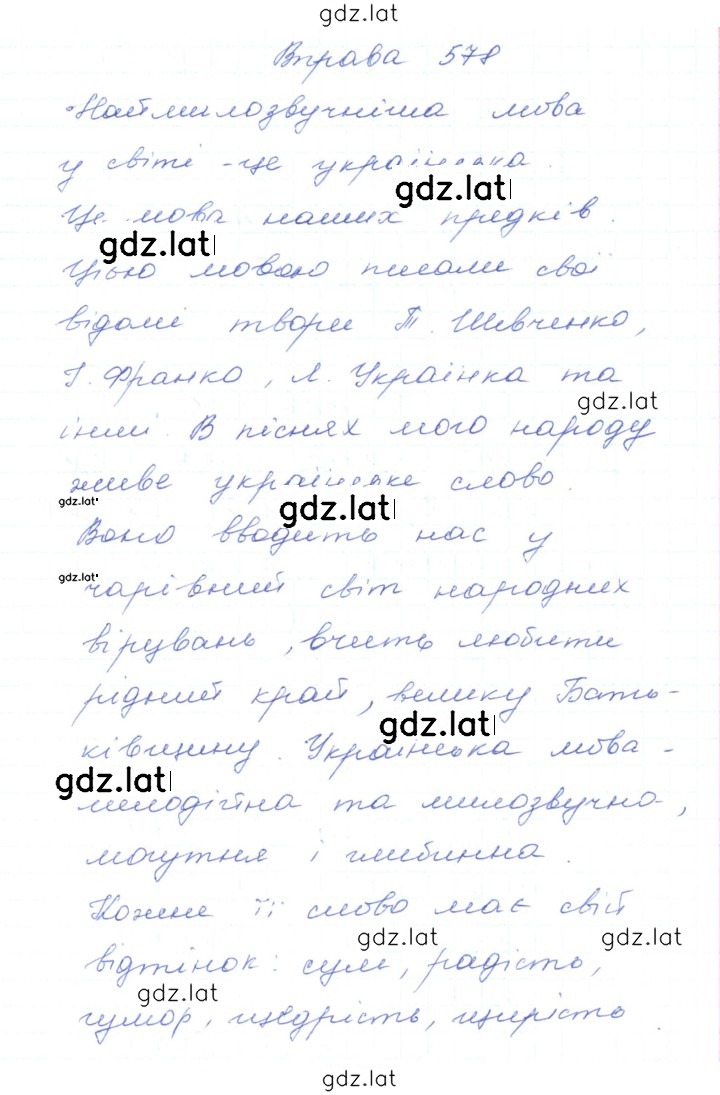 gdz.lat
Вправа 578
Наймилозвучніша мова
у світі - це українська.
gdz.lat
Це мова наших предків.
gdz.lat
Цією мовою писали свої
відомі твори Т. Шевченко,
І. Франко, Л. Українка та
gdz.lat
інші. В піснях мого народу
живе українське слово.
gdz.lat
gdz.lat
Воно вводить нас у
gdz.lat
чарівний світ народних
вірувань, вчить любити
рідний край, велику Бать-
gdz.lat
ківщину. Українська мова -
gdz.lat
мелодійна та милозвучна,
могутня і глибинна.
Кожне її слово має свій
gdz.lat
gdz.lat
відтінок: сум, радість,
gdz.lat
гумор, щедрість, щирість
gdz.lat